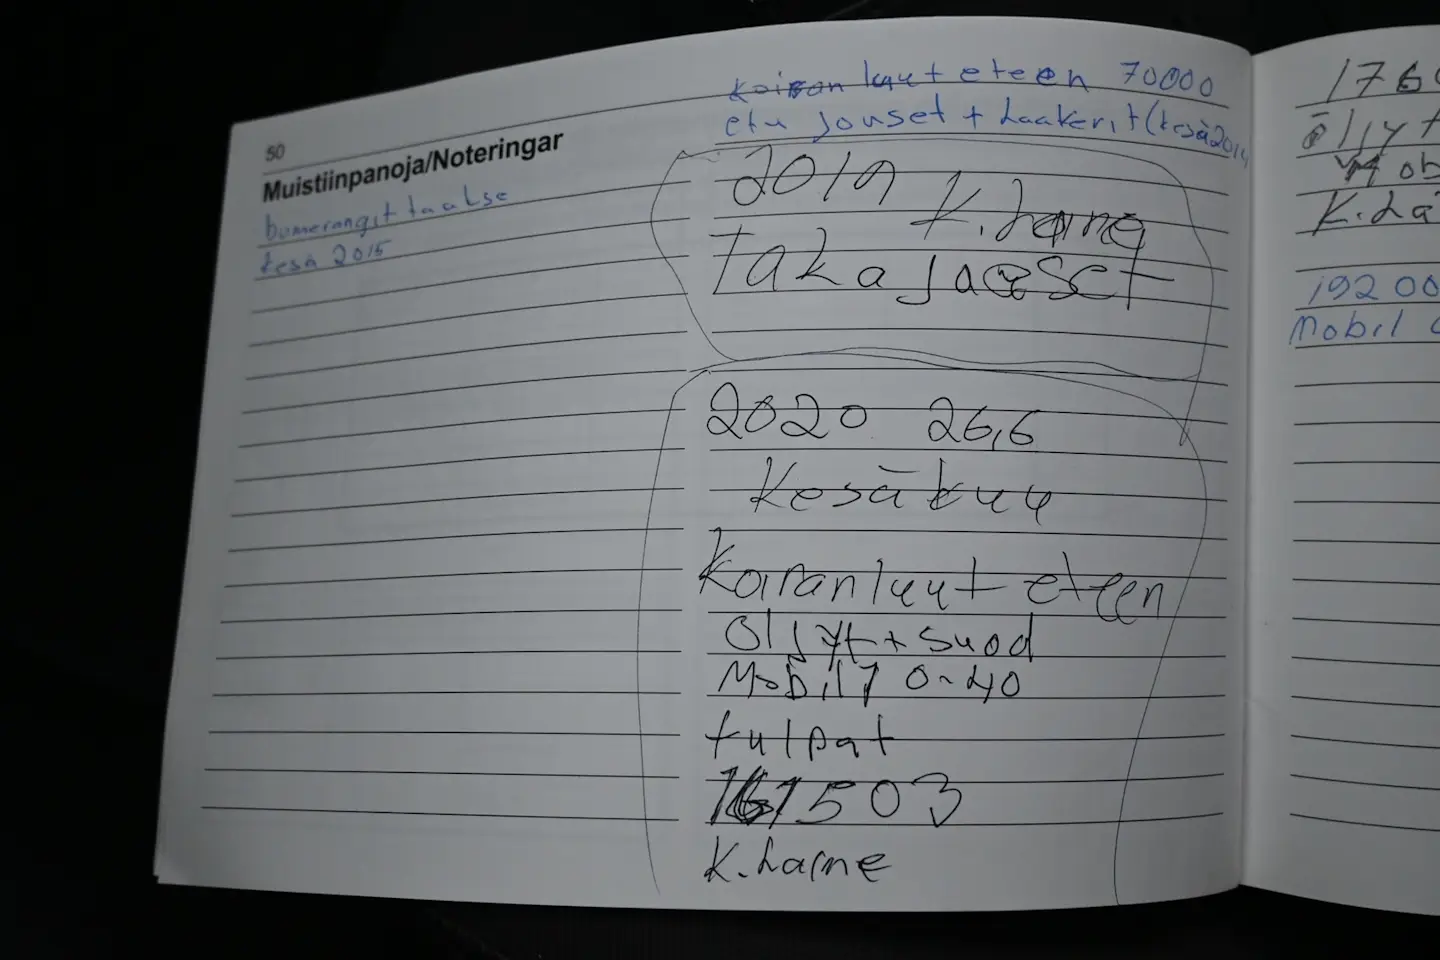 50
Muistiinpanoja/Noteringar
bumerangit taakse
kesä 2015
koiran luut eteen 70000
etu jouset + Laakerit (kesä 2014
2019
K. Laine
Taka jouset
2020 26,6
Kesäkuu
Koiranluut eteen
öljyt + suod
Mobil 1 0-40
tulpat
161503
K. Laine
176
öljyt
Mob
K. La
19200
Mobil